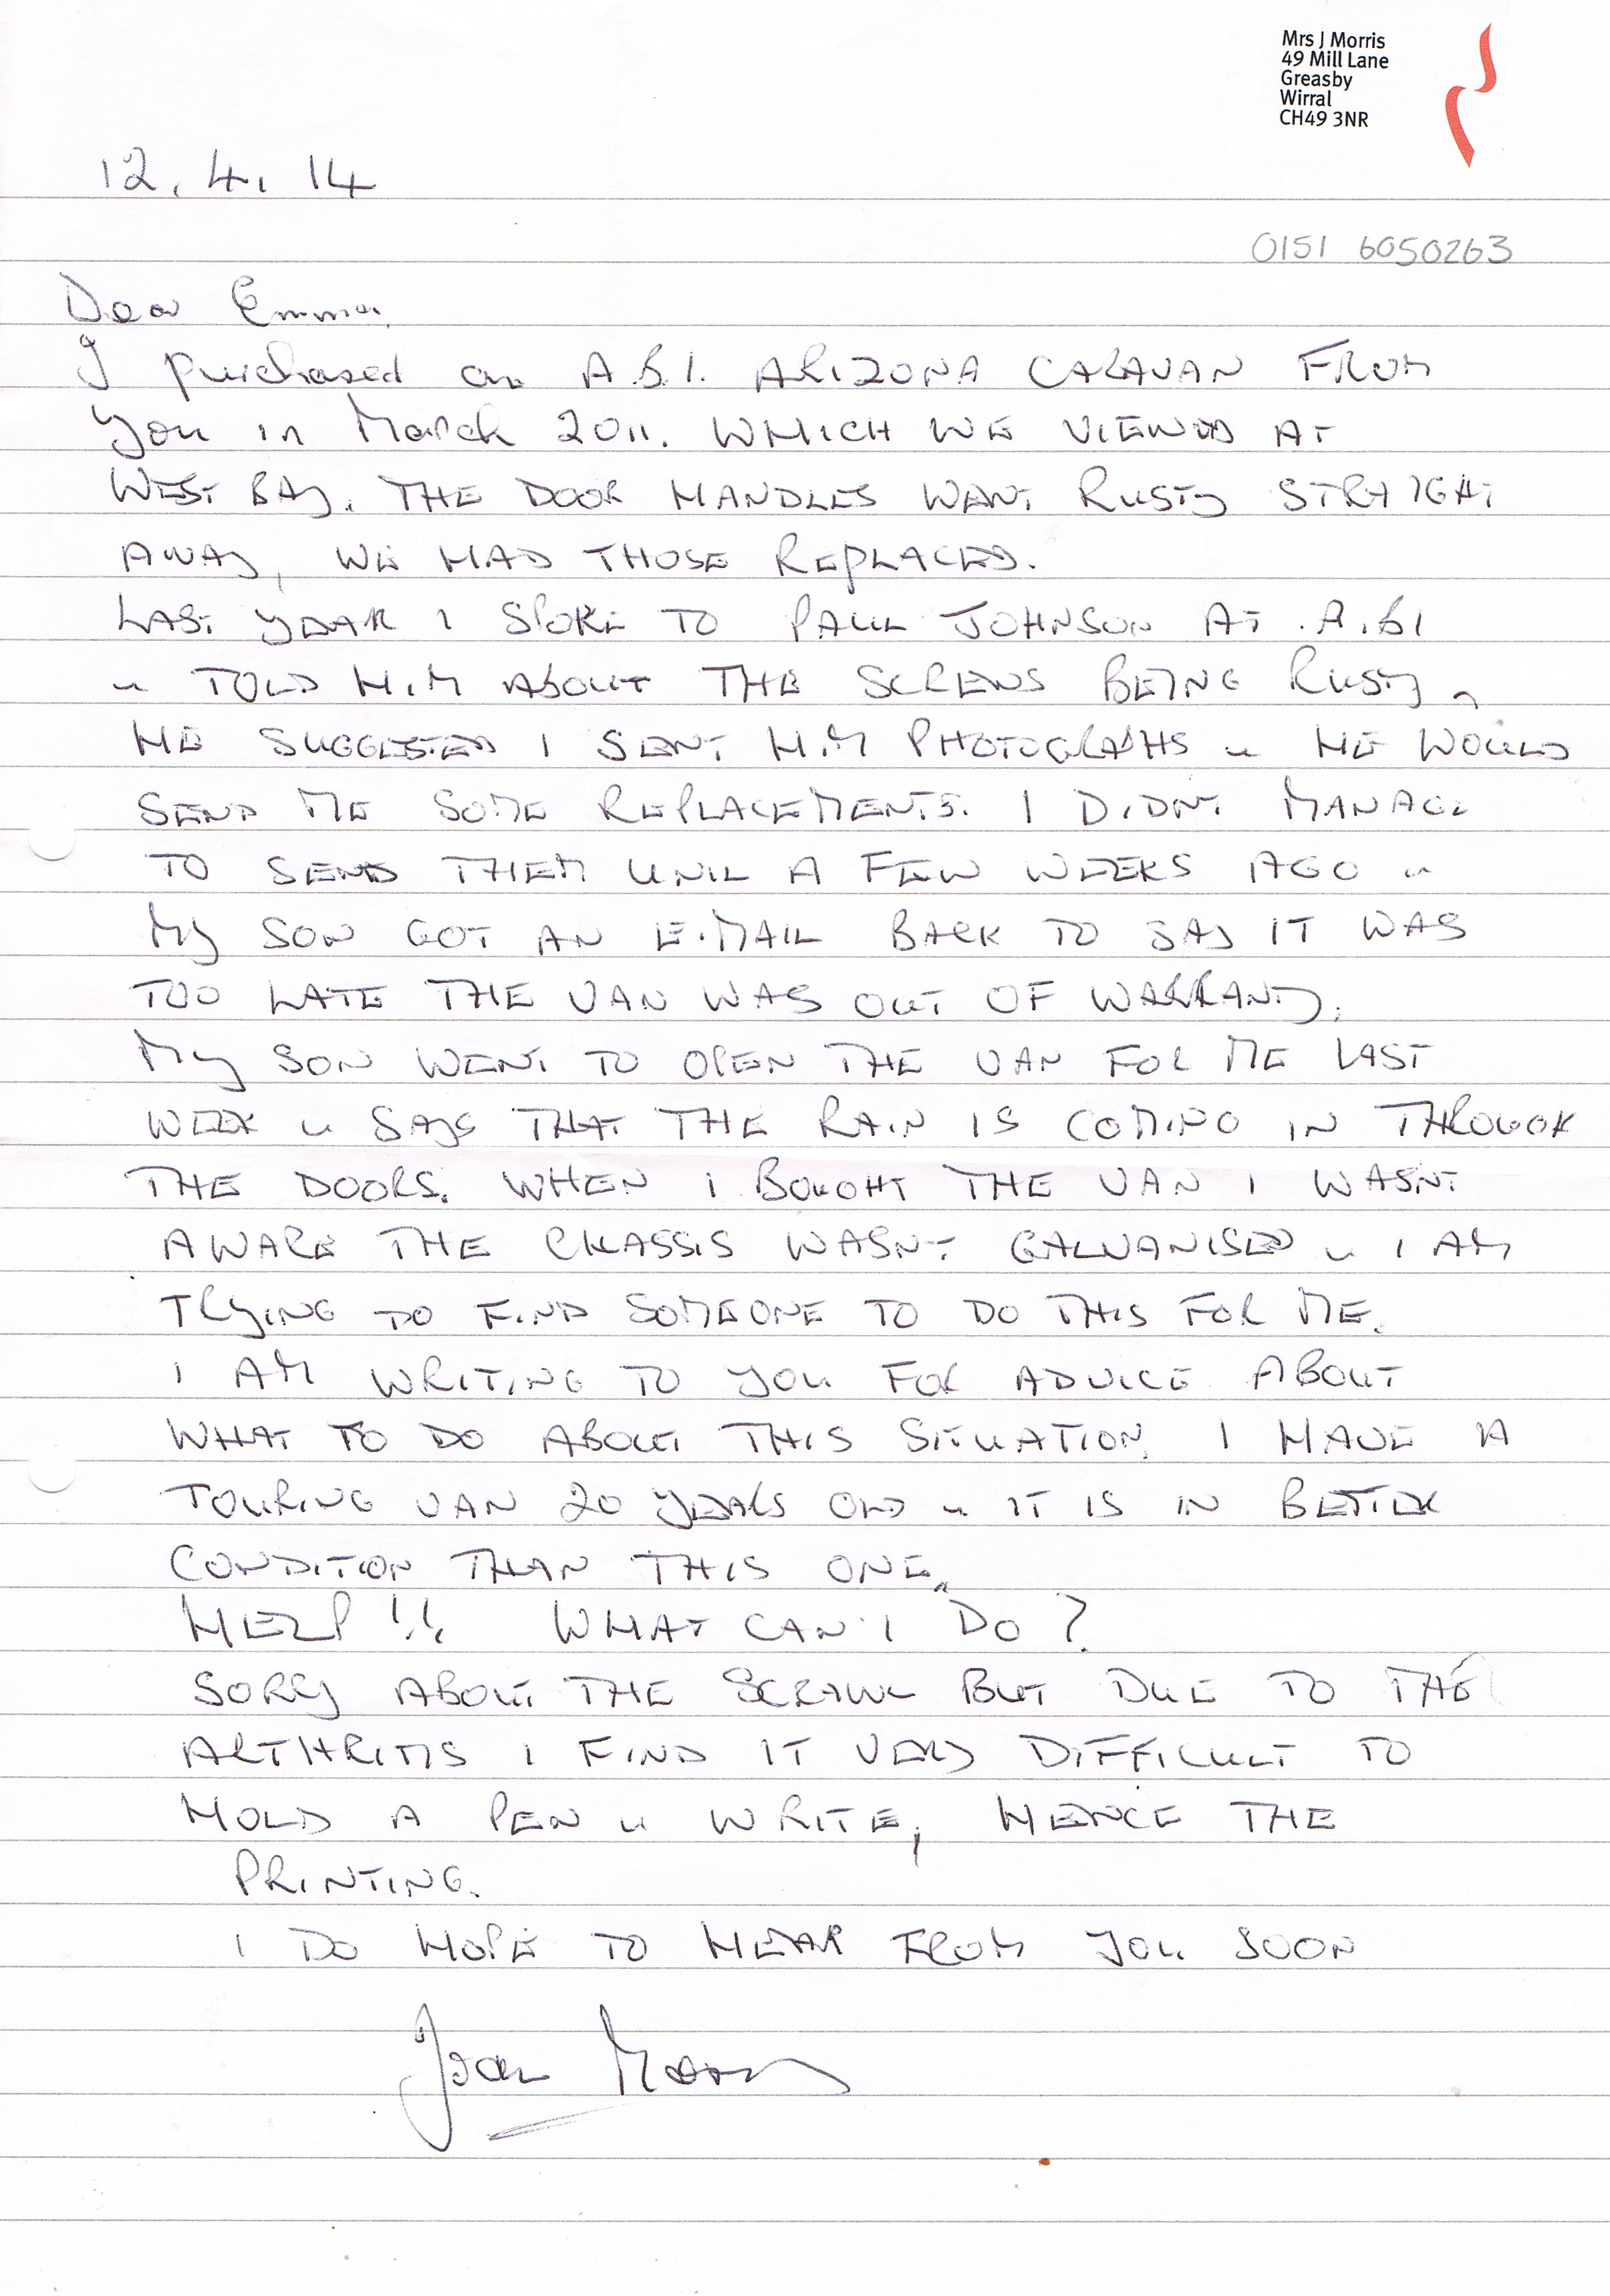 Mrs J Morris
49 Mill Lane
Greasby
Wirral
CH49 3NR
12.4.14
0151 6050263
Dear Emma,
I purchased an A.B.I. ARIZONA CARAVAN FROM
you in March 2011. WHICH WE VIEWED AT
WEST BAY. THE DOOR HANDLES WENT RUSTY STRAIGHT
AWAY, WE HAD THOSE REPLACED.
LAST YEAR I SPOKE TO PAUL JOHNSON AT A.BI
& TOLD HIM ABOUT THE SCREWS BEING RUSTY,
HE SUGGESTED I SENT HIM PHOTOGRAPHS & HE WOULD
SEND ME SOME REPLACEMENTS. I DIDNT MANAGE
TO SEND THEM UNIL A FEW WEEKS AGO &
MY SON GOT AN E.MAIL BACK TO SAY IT WAS
TOO LATE THE VAN WAS OUT OF WARRANTY.
MY SON WENT TO OPEN THE VAN FOR ME LAST
WEEK & SAYS THAT THE RAIN IS COMING IN THROUGH
THE DOORS. WHEN I BOUGHT THE VAN I WASNT
AWARE THE CHASSIS WASNT GALVANISED & I AM
TRYING TO FIND SOMEONE TO DO THIS FOR ME.
I AM WRITING TO YOU FOR ADVICE ABOUT
WHAT TO DO ABOUT THIS SITUATION. I HAVE A
TOURING VAN 20 YEARS OLD & IT IS IN BETTER
CONDITION THAN THIS ONE.
HELP!! WHAT CAN I DO?
SORRY ABOUT THE SCRAWL BUT DUE TO THE
ARTHRITIS I FIND IT VERY DIFFICULT TO
HOLD A PEN & WRITE, HENCE THE
PRINTING.
I DO HOPE TO HEAR FROM YOU SOON
Joan Morris